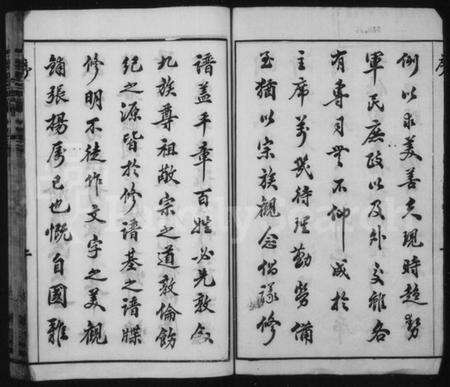 例以求美善夫現時趨勢
軍民庶政以及外交雖各
有專司無不仰成於
主席萬幾待理勤勞備
至猶以宗族觀念倡議修
譜蓋平章百姓必先敦敘
九族尊祖敬宗之道敦倫飭
紀之源皆於修譜基之譜牒
修明不徒作文字之美觀
鋪張揚厲已也慨自國難
序